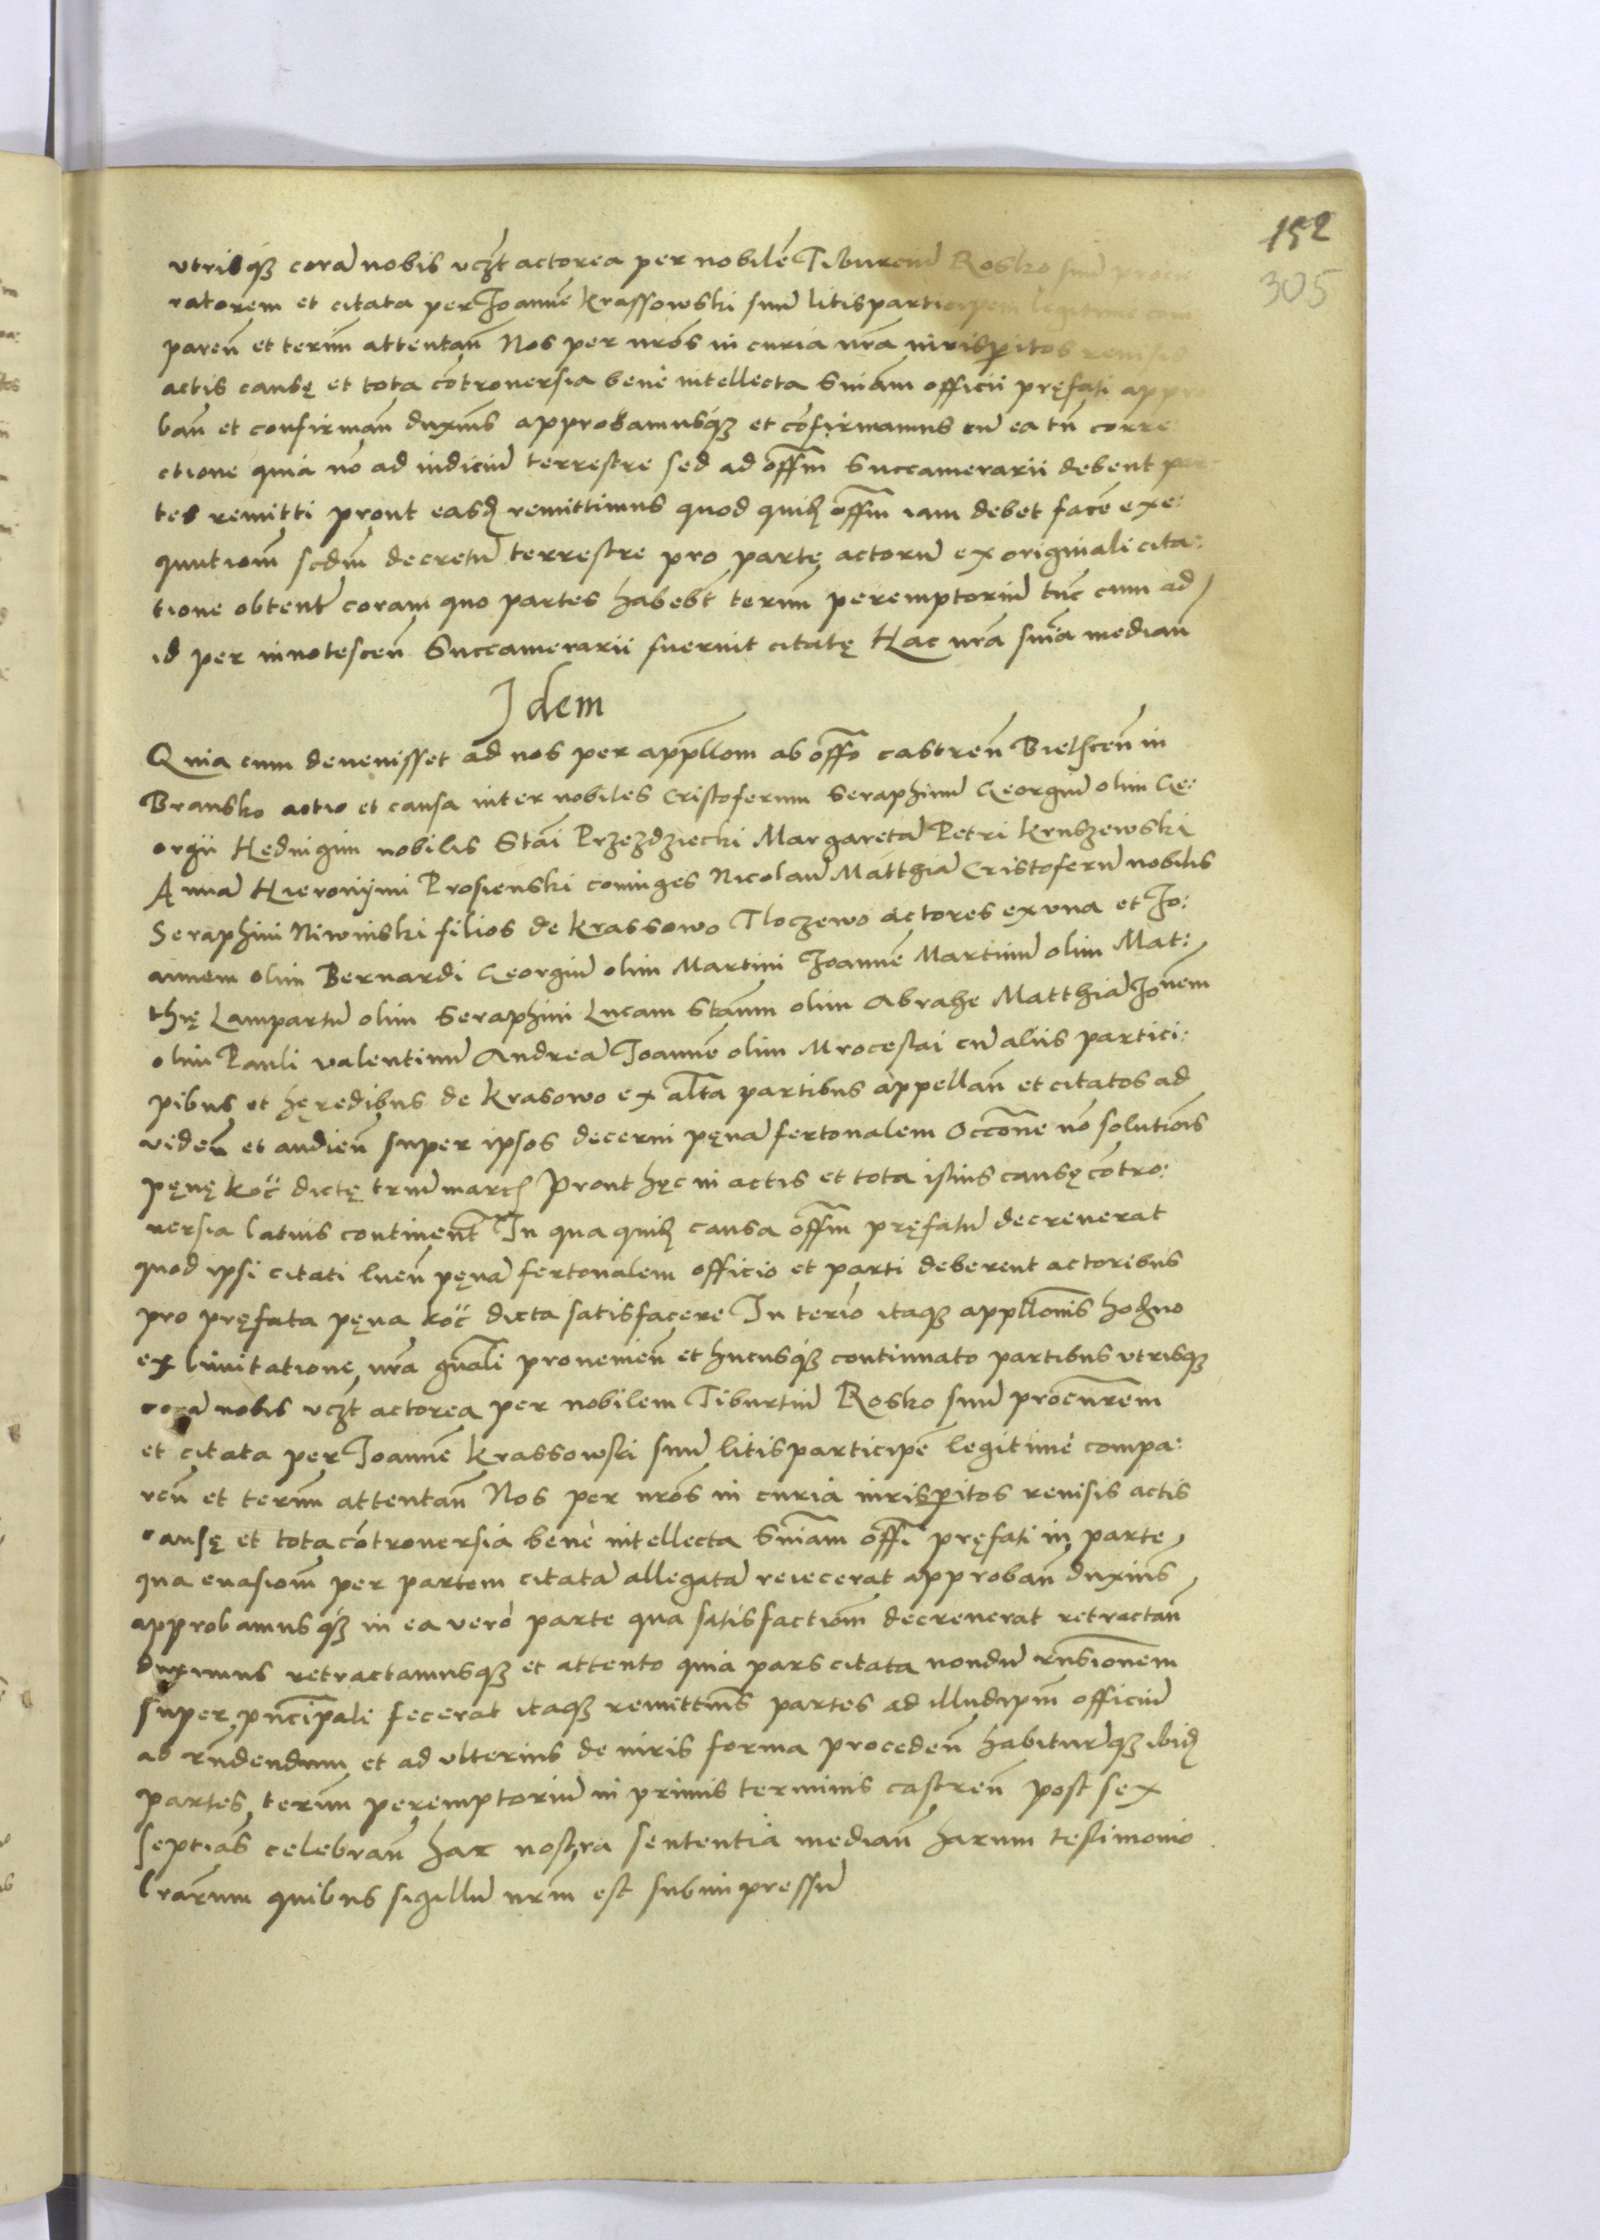 152
305
vtrisq₃ corā nobis vcꝫt actorea per nobilē Tiburciū Rosko suū procu
ratorem et citata per Joannē Krassowski suū litisparticipem legitime com
pareñ et termī attentañ Nos per nr̃os in curia nr̃a iurisperitos reuisis
actis causę et tota cōtrouersia benè intellecta Sniam officii pręfati appro
bañ et confirmañ duxim̃s approbamusq₃ et cōfirmamus cū ea tñ corre
ctione quia nō ad iudiciū terrestre sed ad offm̃ Succamerarii debent par
tes remitti prout easd remittimus quod quid offm̃ iam debet facē exe:
qutiom̃ scdm̃ decretū terrestre pro parte actorū ex originali cita:
tione obtent coram quo partes habebt termī peremptoriū tūc cum ad
id per innotesceñ Succamerarii fuerint citatę Hac nr̃a snia median̄
Idem
Quia cum deuenisset ad nos per appllom̃ ab offo castreñ Bielsceñ in
Bransko actio et causa inter nobiles Cristoferum Seraphinū Georgiū olim Ge:
orgii Heduigim nobilis Stãi Przezdziecki Margaretā Petri Kruszewski
Annā Hieronÿmi Prosienski coniuges Nicolaū Matthiā Cristoferū nobilis
Seraphini Niwinski filios de Krassowo Tloczewo actores ex vna et Jo:
annem olim Bernardi Georgiū olim Martini Joannē Martinū olim Mat:
thię Lampartū olim Seraphini Lucam Stãum olim Abrahe Matthiā Jonem
olim Pauli valentinū Andreā Joannē olim Mrocestai cū aliis partici:
pibus et hęredibus de Krasowo ex alta partibus appellañ et citatos ad
videñ et audieñ super ipsos decerni pęnā fertonalem Occõne nō solutiõis
pęnę koc̈ dictę triū march Prout hęc in actis et tota istius causę cōtro:
uersia latius continent In qua quid causa offm̃ pręfatū decreuerat
quod ipsi citati lueñ pęnā fertonalem officio et parti deberent actoribus
pro pręfata pęna koc̈ dicta satisfacere In termō itaq₃ appllonis hodierno
ex limitatione nr̃a gnãli proueñieñ et hucusq₃ continuato partibus vtrisq₃
corā nobis vcꝫt actorea per nobilem Tiburtiū Rosko suū procurem
et citata per Joannē Krassowski suū litisparticipē legitimè compa:
reñ et termī attentañ Nos per nr̃os in curia iurisperitos reuisis actis
causę et tota cōtrouersia benè intellecta Sniam offi pręfati in parte
qua euasiom̃ per partem citatā allegatā reiecerat approbañ duxim̃s
approbamusq₃ in ea verò parte qua satisfactiom̃ decreuerat retractañ
duximus retractamusq₃ et attento quia pars citata nondū rñsionem
super pñcipali fecerat itaq₃ remittim̃s partes ad illud ipm̃ officiū
ad rñdendum et ad vlterius de iuris forma procedeñ habiturq₃ ibid
partes termī peremptoriū in primis terminis castreñ post sex
septiãs celebrañ hac nostra sententia mediañ harum testimonio
lrarum quibus sigillū nrm̃ est subimpressū